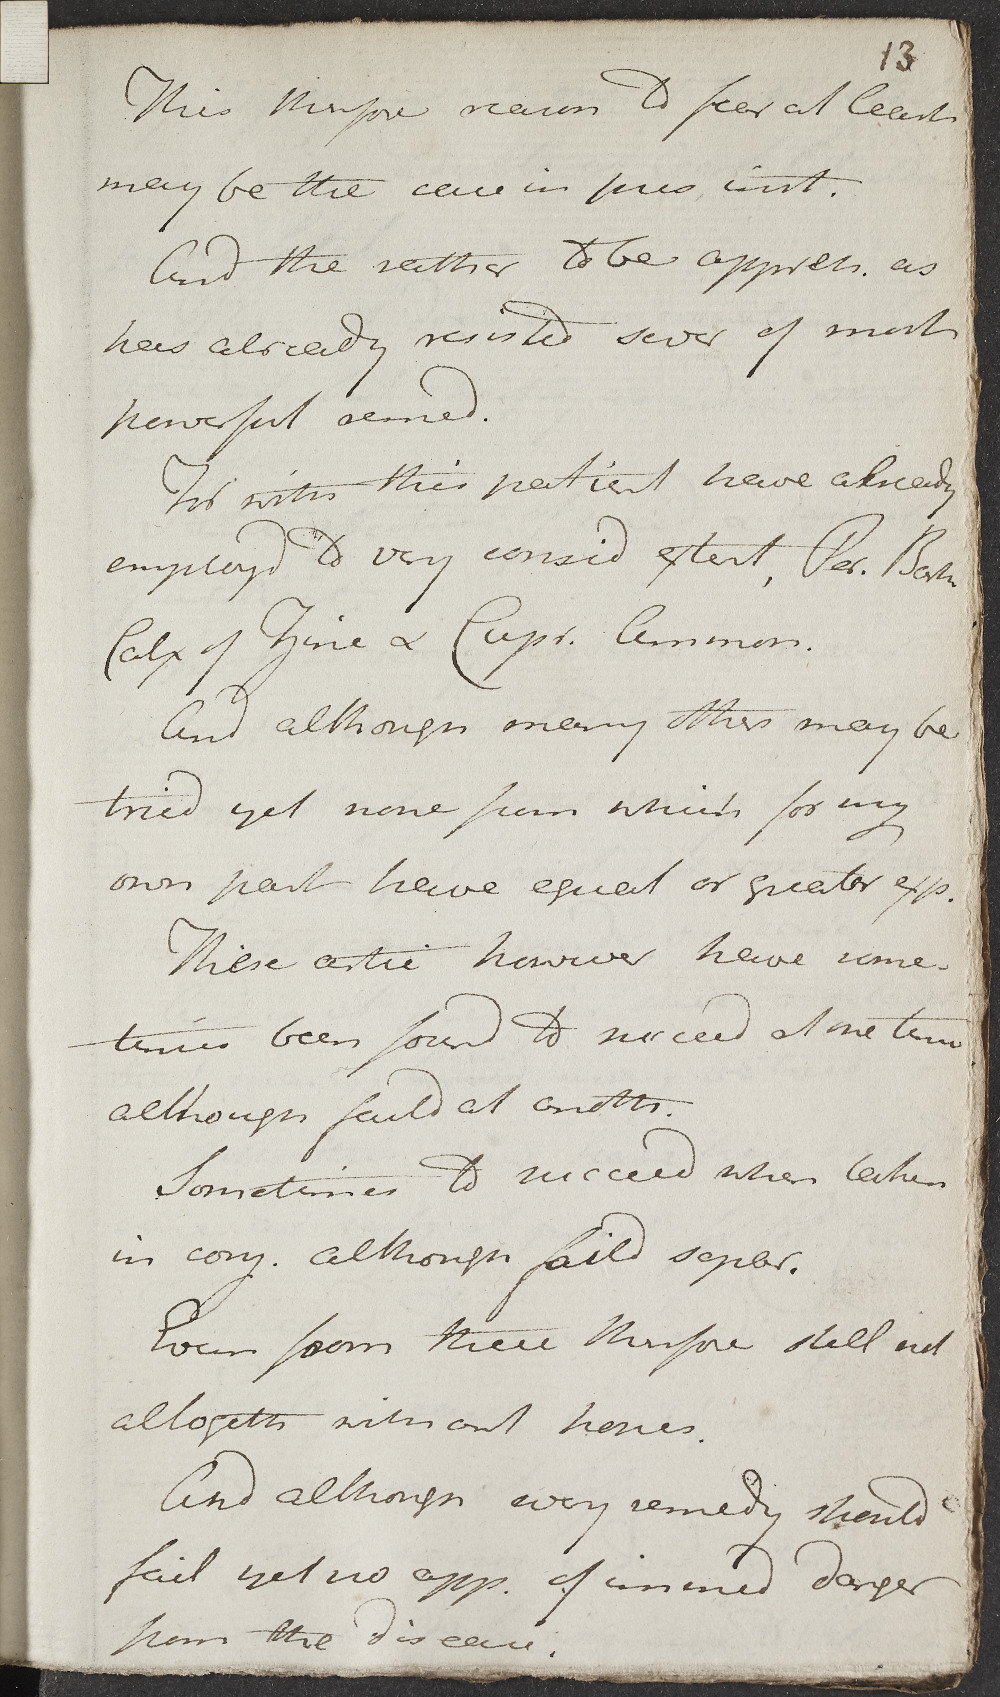 13
This therefore reason to fear at least
may be the case in pres inst.
And the rather to be appreh. as
has already resisted sever of most
powerful remed.
For with this patient have already
employd to very consid extent, Per. Bark
Calx of Zinc & Cupr. Ammon.
And although many others may be
tried yet none from which for my
own part have equal or greater exp.
These artic however have some-
times been found to succeed at one time
although faild at anoth.
Sometimes to succeed when taken
in conj. although faild separ.
Even from these therefore still not
altogeth without hopes.
And although every remedy should
fail yet no app. of immed danger
from the disease.